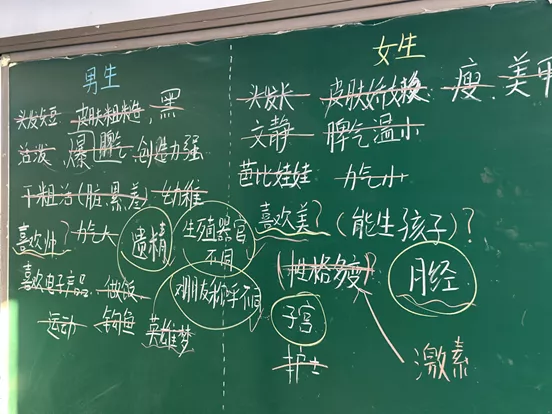 男生
头发短 皮肤粗糙, 黑
活泼 爆脾气 创造力强
干粗活(脏、累、差) 幼稚
喜欢帅? 力气大 遗精 生殖器官不同
喜欢电子产品 做饭 对朋友称呼不同
运动 钓鱼 英雄梦
女生
头发长 皮肤娇嫩 瘦 美
文静 脾气温小
芭比娃娃 力气小
喜欢美? (能生孩子)?
(性格多疑?) 月经
子宫
护士 激素